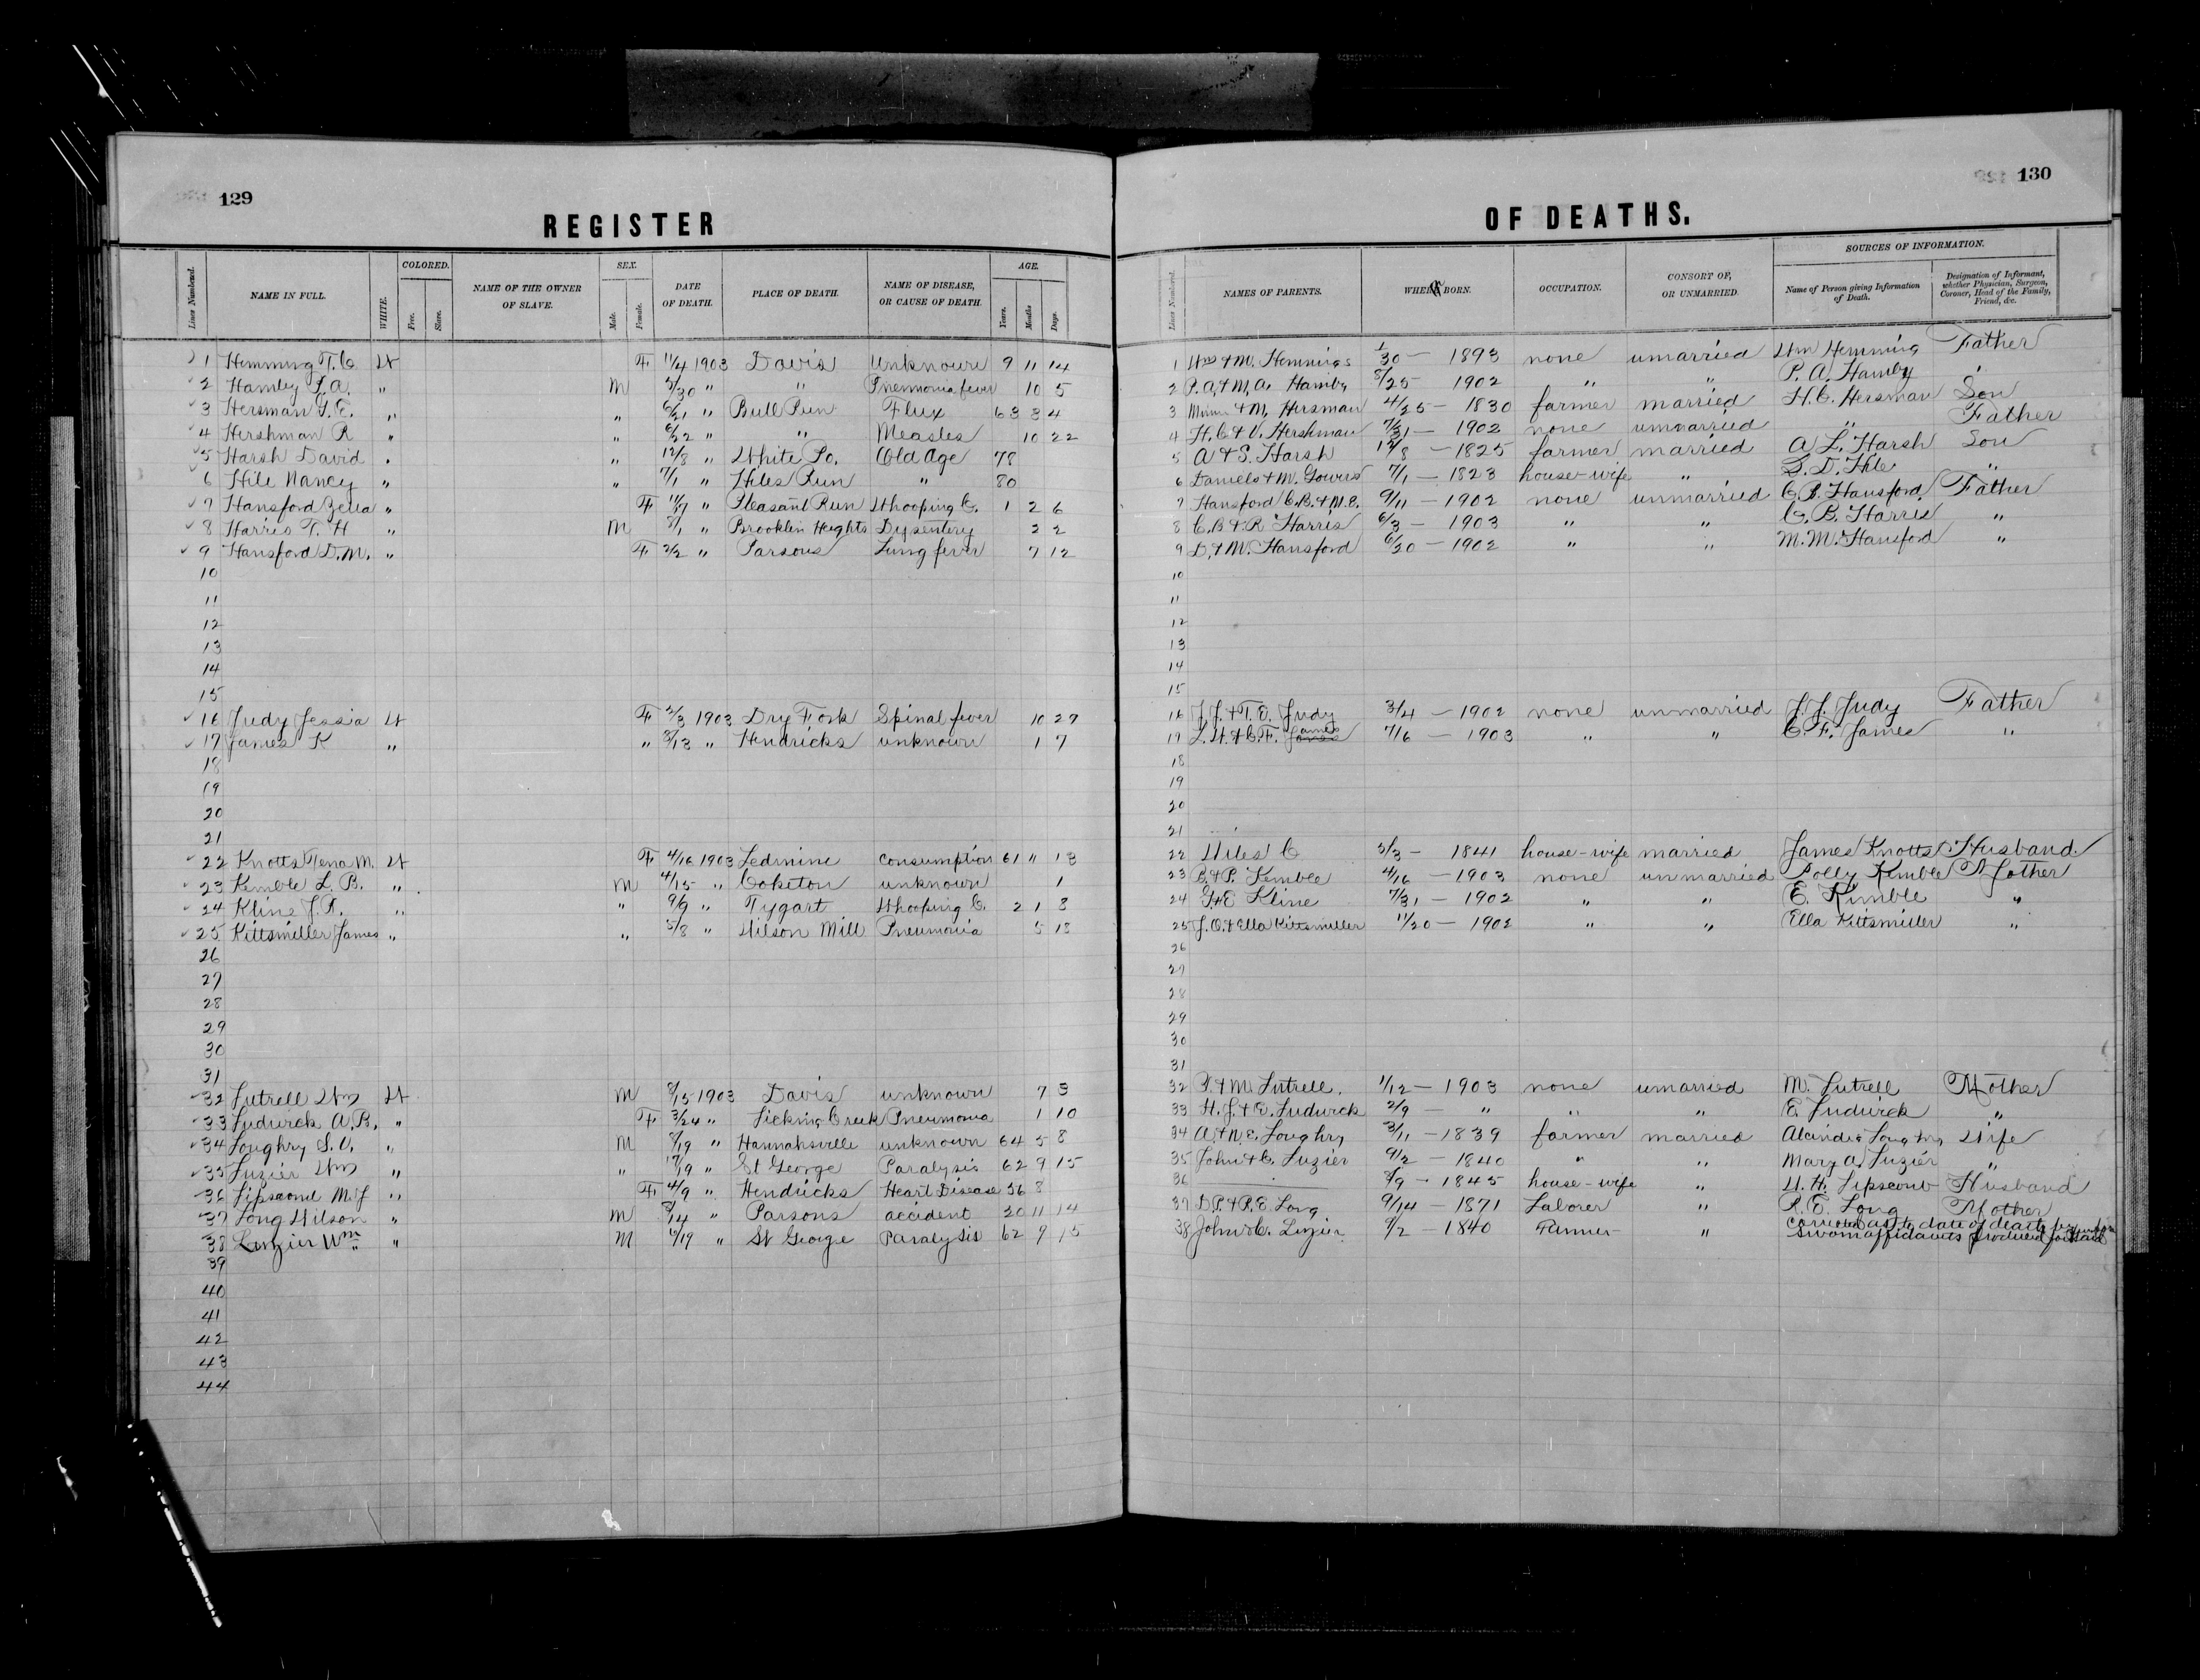 129
REGISTER
Lines Numbered. NAME IN FULL. WHITE. COLORED. Free. Slave. NAME OF THE OWNER OF SLAVE. SEX. Male. Female. DATE OF DEATH. PLACE OF DEATH. NAME OF DISEASE, OR CAUSE OF DEATH. AGE. Years. Months Days.
1 Hemming T. C. W F 11/4 1903 Davis Unknown 9 11 14
2 Hamby P. A. " M 5/30 " " Pnemonia fever 10 5
3 Hersman G. E. " " 6/21 " Bull Run Flux 63 3 4
4 Hershman R " " 6/22 " " Measles 10 22
5 Harsh David " " 12/8 " White Po. Old Age 78
6 Hile Nancy " " 7/1 " Hiles Run " 80
7 Hansford Zella " F 11/7 " Pleasant Run Whooping C. 1 2 6
8 Harris T. H " M 8/1 " Brooklin Heights Dysentery 2 2
9 Hansford D. M. " F 2/2 " Parsons Lung fever 7 12
10
11
12
13
14
15
16 Judy Jessia W F 2/3 1903 Dry Fork Spinal fever 10 27
17 James K " " 8/13 " Hendricks unknown 1 7
18
19
20
21
22 Knotts Tena M. W F 4/16 1903 Ledmine consumption 61 " 13
23 Kimble L. B. " M 4/15 " Coketon unknown 1
24 Kline J. R. " " 9/9 " Tygart Whooping C. 2 1 8
25 Kittsmiller James " " 5/8 " Wilson Mill Pneumonia 5 18
26
27
28
29
30
31
32 Lutrell Wm W M 8/15 1903 Davis unknown 7 3
33 Ludwick A. B. " F 3/24 " Licking Creek Pneumonia 1 10
34 Loughry S. V. " M 8/19 " Hannahsville unknown 64 5 8
35 Luzier Wm " " 19 " St George Paralysis 62 9 15
36 Lipscomb M. J " F 4/9 " Hendricks Heart Disease 56 8
37 Long Wilson " M 8/14 " Parsons accident 30 11 14
38 Luzier Wm " M 6/19 " St George Paralysis 62 9 15
39
40
41
42
43
44
130
OF DEATHS.
Lines Numbered. NAMES OF PARENTS. WHEN BORN. OCCUPATION. CONSORT OF, OR UNMARRIED. SOURCES OF INFORMATION. Name of Person giving Information of Death. Designation of Informant, whether Physician, Surgeon, Coroner, Head of the Family, Friend, &c.
1 Wm & M. Hemmings 1/30 - 1893 none unmarried Wm Hemming Father
2 P. A. & M. A. Hamby 8/25 1902 " " P. A. Hamby "
3 & M. Hersman 4/25 - 1830 farmer married H. C. Hersman Son
4 H. C. & V. Hershman 7/31 - 1902 none unmarried " Father
5 A & S. Harsh 12/8 - 1825 farmer married A L. Harsh Son
6 Daniels & M. Gowers 7/1 - 1823 house-wife " S. D. Hile "
7 Hansford C. B. & M. E. 9/11 - 1902 none unmarried C. B. Hansford Father
8 C. B & R Harris 6/3 - 1903 " " C. B. Harris "
9 D. & M. Hansford 6/20 - 1902 " " M. M. Hansford "
10
11
12
13
14
15
16 J. J. & T. E. Judy 3/4 - 1902 none unmarried J. J. Judy Father
17 L. W. & C. F. James 7/6 - 1903 " " C. F. James "
18
19
20
21
22 Wiles C 3/3 - 1841 house-wife married James Knotts Husband
23 B. & P. Kimble 4/16 - 1903 none unmarried Polly Kimble Mother
24 G & E Kline 7/31 - 1902 " " E. Kimble "
25 J. O. & Ella Kittsmiller 11/20 - 1902 " " Ella Kittsmiller "
26
27
28
29
30
31
32 P. & M. Lutrell. 1/12 - 1903 none unmarried M. Lutrell Mother
33 H. J. & E. Ludwick 2/9 - " " " E. Ludwick "
34 A. & N. E. Loughry 3/11 - 1839 farmer married Loughry Wife
35 John & C. Luzier 9/2 - 1840 " " Mary A. Luzier "
36 8/9 - 1845 house-wife " W. H. Lipscomb Husband
37 D. P. & R. E. Long 9/14 - 1871 Laborer " R. E. Long Mother
38 John & C. Luzier 9/2 - 1840 Farmer " corrected as to date of death by sworn affidavits produced